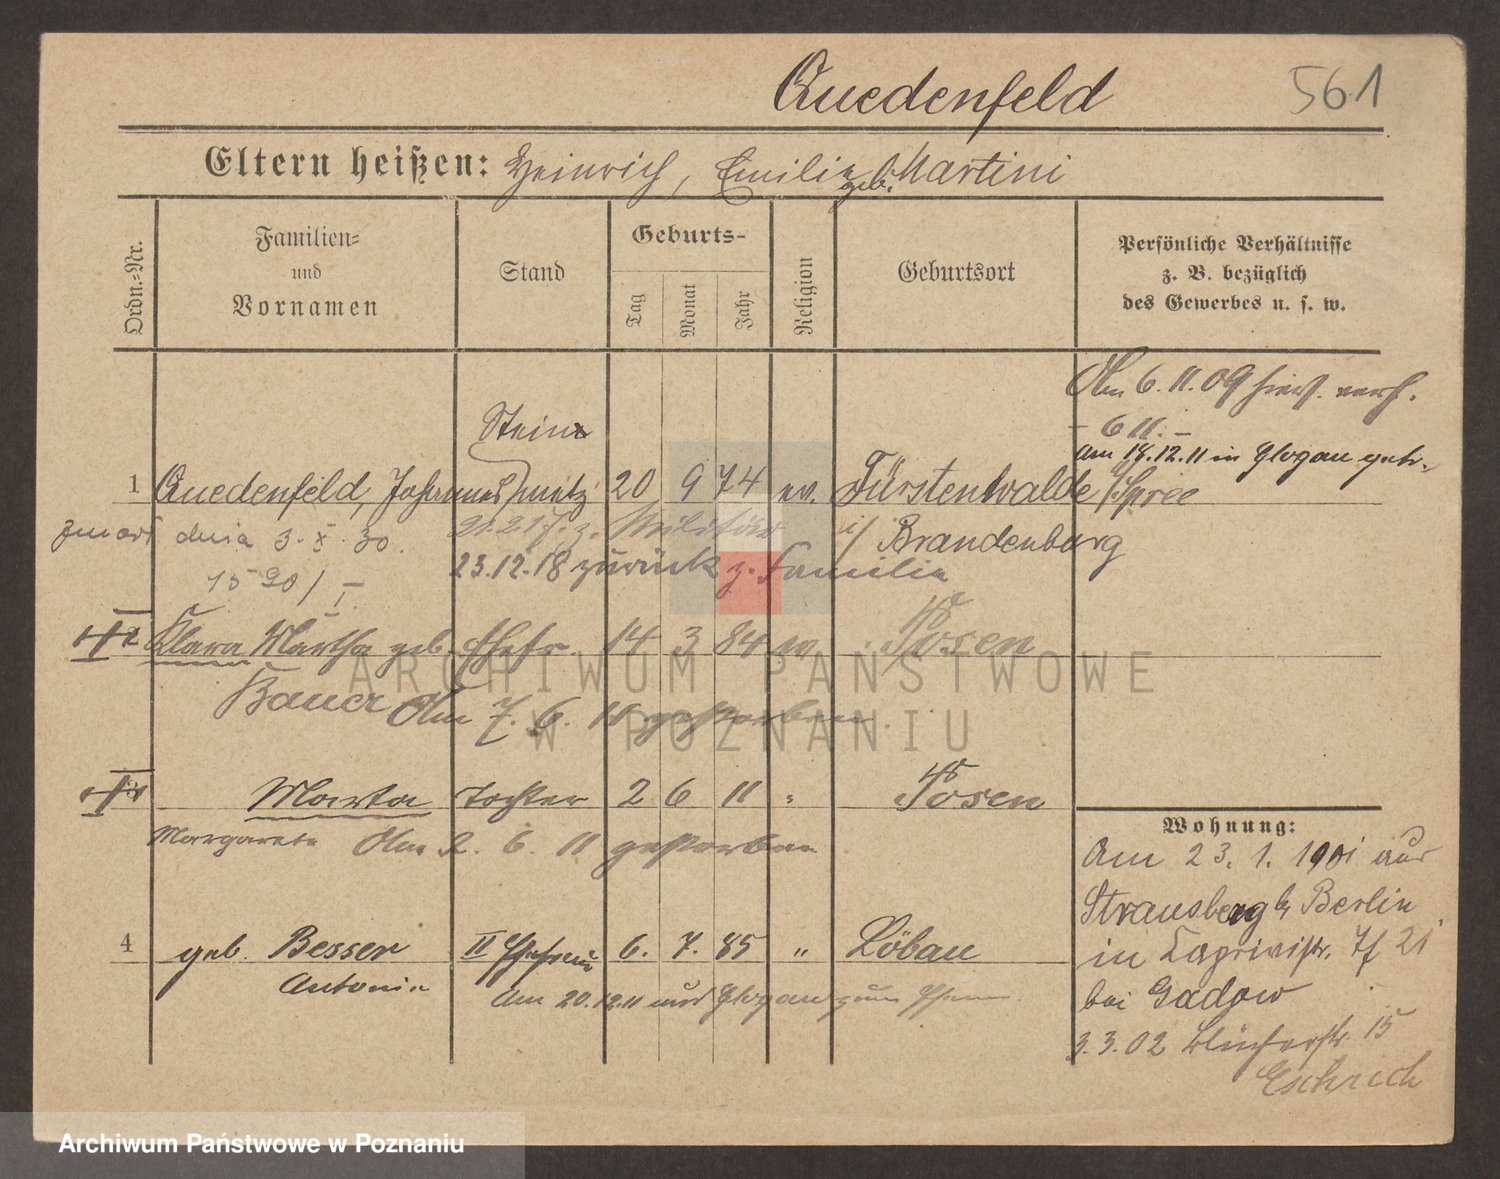 Quedenfeld 561
Eltern heißen: Heinrich, Emilie geb. Martini
Ordn.=Nr.
Familien=
und
Vornamen
Stand
Geburts-
Tag
Monat
Jahr
Religion
Geburtsort
Persönliche Verhältnisse
z. B. bezüglich
des Gewerbes u. s. w.
Am 6.11.09 verh.
- 6 11. -
am 18.12.11 in Glogau getr.
Stein
1 Quedenfeld, Johannes metz 20 9 74 ev. Fürstenwalde /Spree
zmarł dnia 3. X. 30.
z. Militär
i/ Brandenburg
23.12.18 zurück z. Familie
1520/I
2 Klara Martha geb. Ehefr. 14 3 84 ev. Posen
Bauer Am 7. 6. 11 gestorben.
3 Marta Tochter 2 6 11 " Posen
Margarete Am 2. 6. 11 gestorben
4 geb. Besser II Ehefrau 6. 7. 85 " Löbau
Antonie
Am 20.12.11 aus Glogau zum Ehem.
Wohnung:
Am 23. 1. 1901 aus
Strausberg b/ Berlin
in Caprivistr. 7f 21
bei Gadow
3.3.02 Blücherstr. 15
Eschrich
ARCHIWUM PAŃSTWOWE
W POZNANIU
Archiwum Państwowe w Poznaniu